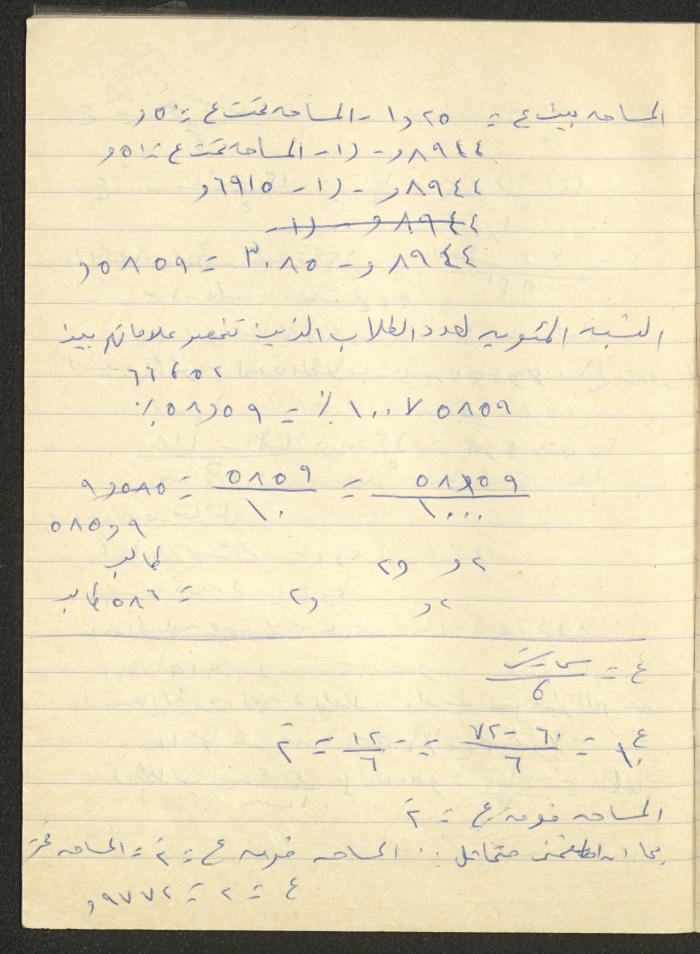 المساحه بين ع = ١٫٢٥ - المساحه تحت ع = ٫٥٠
٫٨٩٤٤ - (١ - المساحه تحت ع = ٫٥١
٫٨٩٤٤ - (١ - ٫٦٩١٥
٫٨٩٤٤ - (١ -
٫٨٩٤٤ - ٣٠٨٥ = ٫٥٨٥٩
النسبه المئويه لعدد الطلاب الذين تنحصر علاماتهم بين
٦٦ ، ٥٢
٥٨٥٩ × ١٠٠٪ = ٥٨٫٥٩٪
٥٨٫٥٩ / ١٠٠٠ = ٥٨٥٩ / ١٠ = ٥٨٥٫٩
٥٨٥٫٩
طالب
= ٥٨٦ طالب
ع = س - سَ / ٦
ع١ = ٦٠ - ٧٢ / ٦ = - ١٢ / ٦ = -٢
المساحه فوق ع = -٢
بما ان المنحنى متماثل ∴ المساحه فوق ع = -٢ = المساحه تحت
ع = ٢ = ٫٩٧٧٢